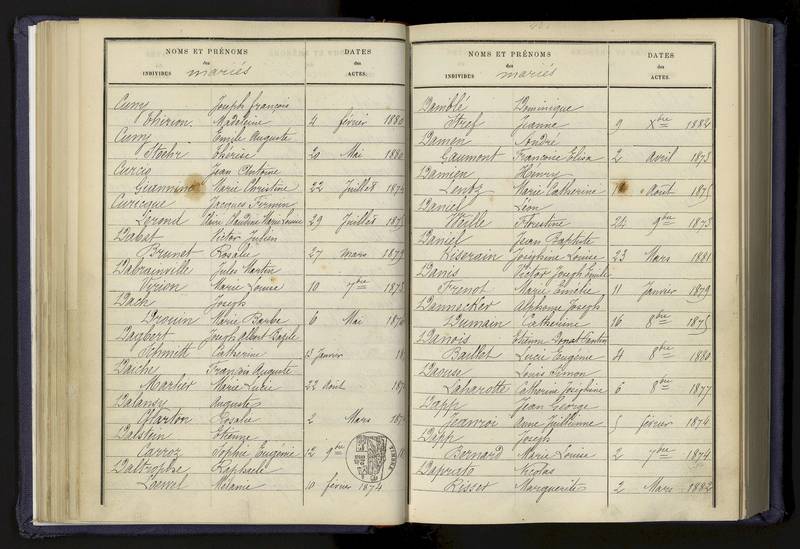 NOMS ET PRÉNOMS DATES
des des
INDIVIDUS mariés ACTES.
Cuny Joseph françois
Thirion Madeleine 4 février 1880
Cuny Emile Auguste
Stoehr Thérèse 20 Mai 1880
Curcio Jean Antoine
Marie Christine 22 Juillet 1874
Curicque Jacques Firmin
Lerond Marie Louise 29 Juillet 1875
Dabst Victor Julien
Brunet Rosalie 27 mars 1879
Dabrainville Jules Martin
Virion Marie Louise 10 7bre 1873
Dach Joseph
Drouin Marie Barbe 6 Mai
Dagbert Joseph Albert Basile
Schmitt Catherine 13 Janvier
Daiche François Auguste
Marie Lucie 22 Août
Dalansy Auguste
Rosalie 2 Mars
Dalstein Etienne
Carroz Sophie Eugénie 12 9bre
Daltrophe Raphaël
Loewel Mélanie 10 février 1874
NOMS ET PRÉNOMS DATES
des des
INDIVIDUS mariés ACTES.
Damblé Dominique
Stref Jeanne 9 Xbre 1882
Damen André
Gaumont Françoise Elisa 2 Avril 1873
Damien Henry
Lentz Marie Catherine Août 1875
Daniel Léon
Weille Florestine 24 9bre 1873
Daniel Jean Baptiste
Joséphine Louise 23 Mars 1881
Danis Victor Joseph Emile
Frenot Marie Emélie 11 Janvier 1879
Dannecker Alphonse Joseph
Dumain Catherine 16 8bre 1875
Danois Etienne Donat
Baillet Lucie Eugénie 4 8bre 1880
Daouse Louis Simon
Laharotte Catherine Joséphine 6 8bre 1877
Dapp Jean George
Jeanroi Anne Julienne 5 février 1874
Dapp Joseph
Bernard Marie Louise 2 7bre 1874
Daprato Nicolas
Risser Marguerite 2 Mars 1882